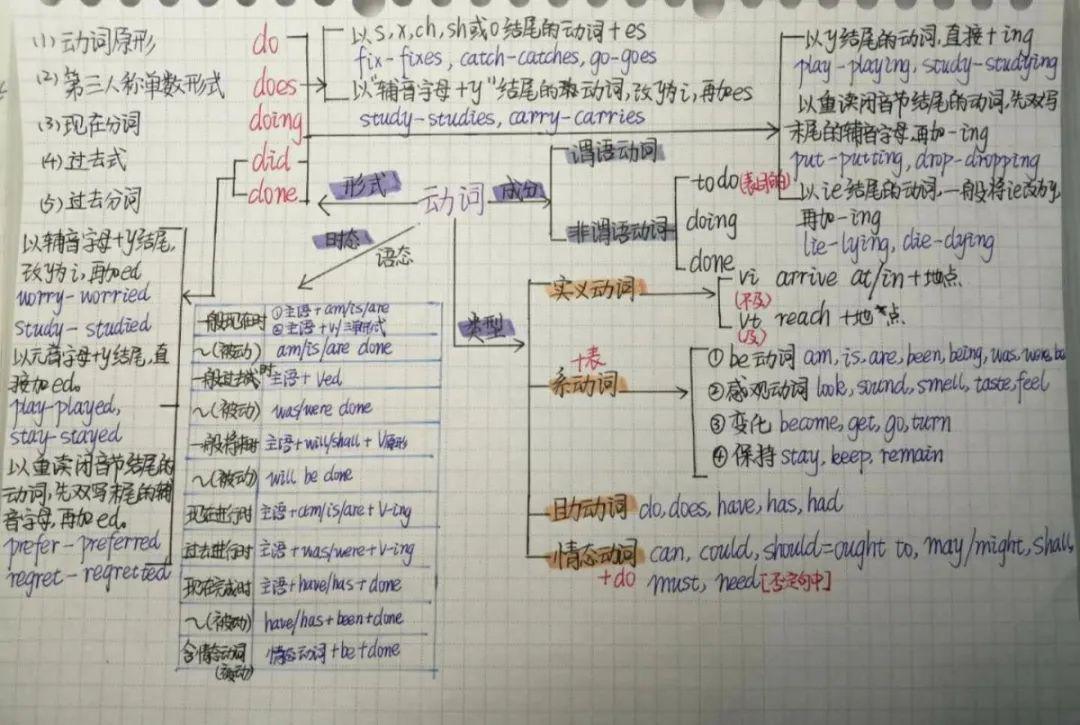 (1) 动词原形 do
(2) 第三人称单数形式 does
(3) 现在分词 doing
(4) 过去式 did
(5) 过去分词 done
以s,x,ch,sh或o结尾的动词+es
fix-fixes, catch-catches, go-goes
以"辅音字母+y"结尾的动词,改y为i,再加es
study-studies, carry-carries
以y结尾的动词,直接+ing
play-playing, study-studying
以重读闭音节结尾的动词,先双写
末尾的辅音字母,再加-ing
put-putting, drop-dropping
以ie结尾的动词,一般将ie改为y,
再加-ing
lie-lying, die-dying
形式 动词 成分
时态
语态
类型
谓语动词
非谓语动词
to do(表目的)
doing
done
以辅音字母+y结尾,
改y为i,再加ed
worry-worried
study-studied
以元音字母+y结尾,直
接加ed。
play-played,
stay-stayed
以重读闭音节结尾的
动词,先双写末尾的辅
音字母,再加ed。
prefer-preferred
regret-regretted
一般现在时 ①主语+am/is/are
②主语+v/三单形式
~(被动) am/is/are done
一般过去时 主语+Ved
~(被动) was/were done
一般将来时 主语+will/shall+V原形
~(被动) will be done
现在进行时 主语+am/is/are+V-ing
过去进行时 主语+was/were+V-ing
现在完成时 主语+have/has+done
~(被动) have/has+been+done
含情态动词 情态动词+be+done
(被动)
实义动词
vi arrive at/in+地点
(不及)
vt reach+地点
(及)
系动词
+表
①be动词 am, is, are, been, being, was, were, be
②感观动词 look, sound, smell, taste, feel
③变化 become, get, go, turn
④保持 stay, keep, remain
助动词 do, does, have, has, had
情态动词 can, could, should=ought to, may/might, shall,
+do must, need[否定句中]